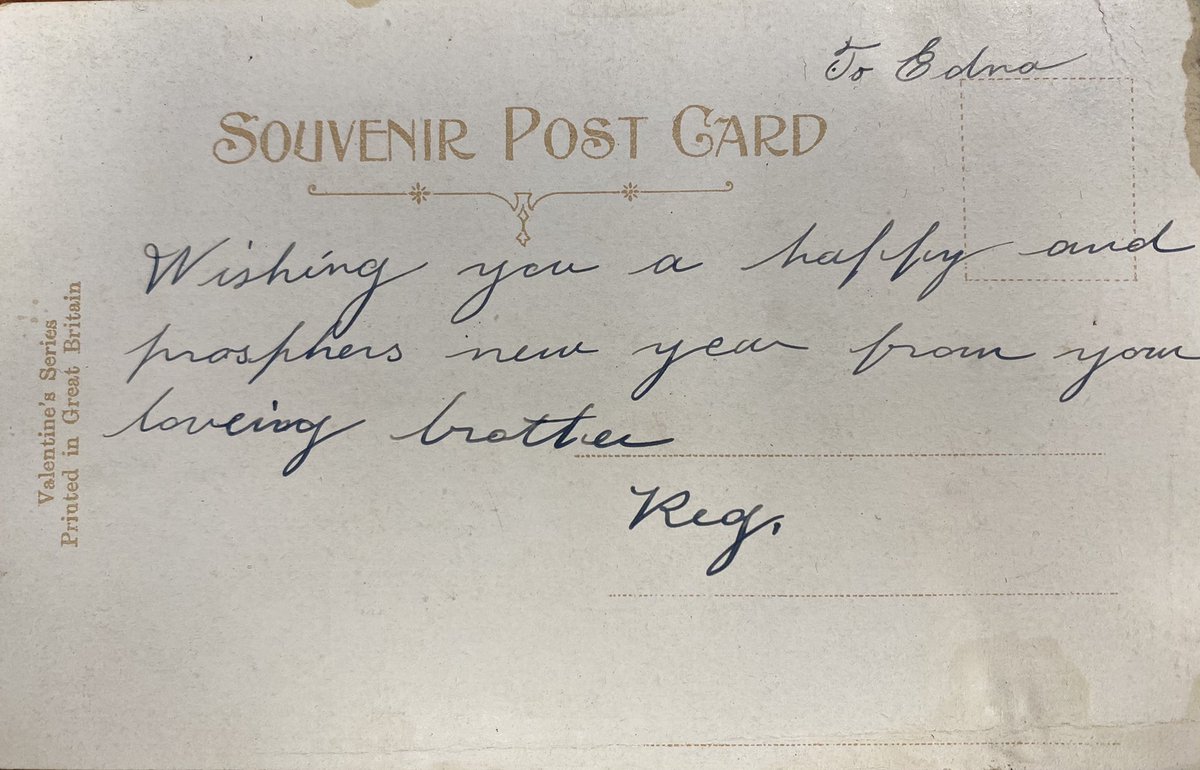 To Edna
SOUVENIR POST CARD
Wishing you a happy and
prosphers new year from your
loveing brother
Reg.
Valentine's Series
Printed in Great Britain